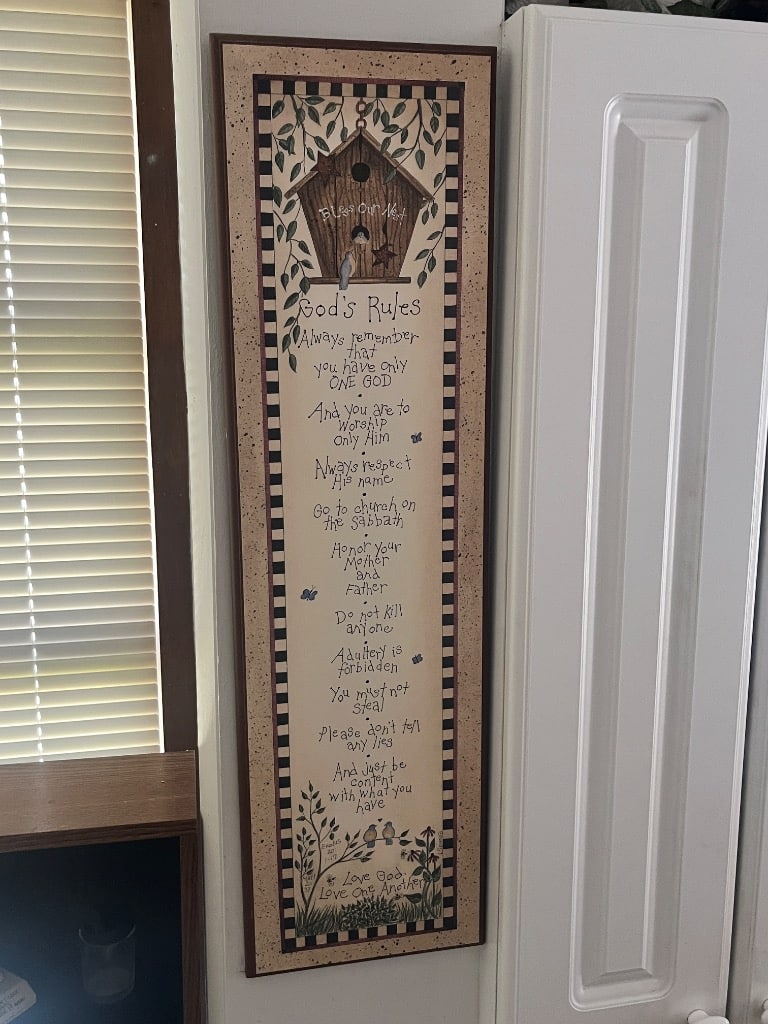 Bless Our Nest
God's Rules
Always remember
that
you have only
ONE GOD
And you are to
worship
only Him
Always respect
His name
Go to church on
the Sabbath
Honor your
Mother
and
Father
Do not kill
anyone
Adultery is
forbidden
You must not
steal
Please don't tell
any lies
And just be
content
with what you
have
Exodus
20
1-17
Love God
Love One Another